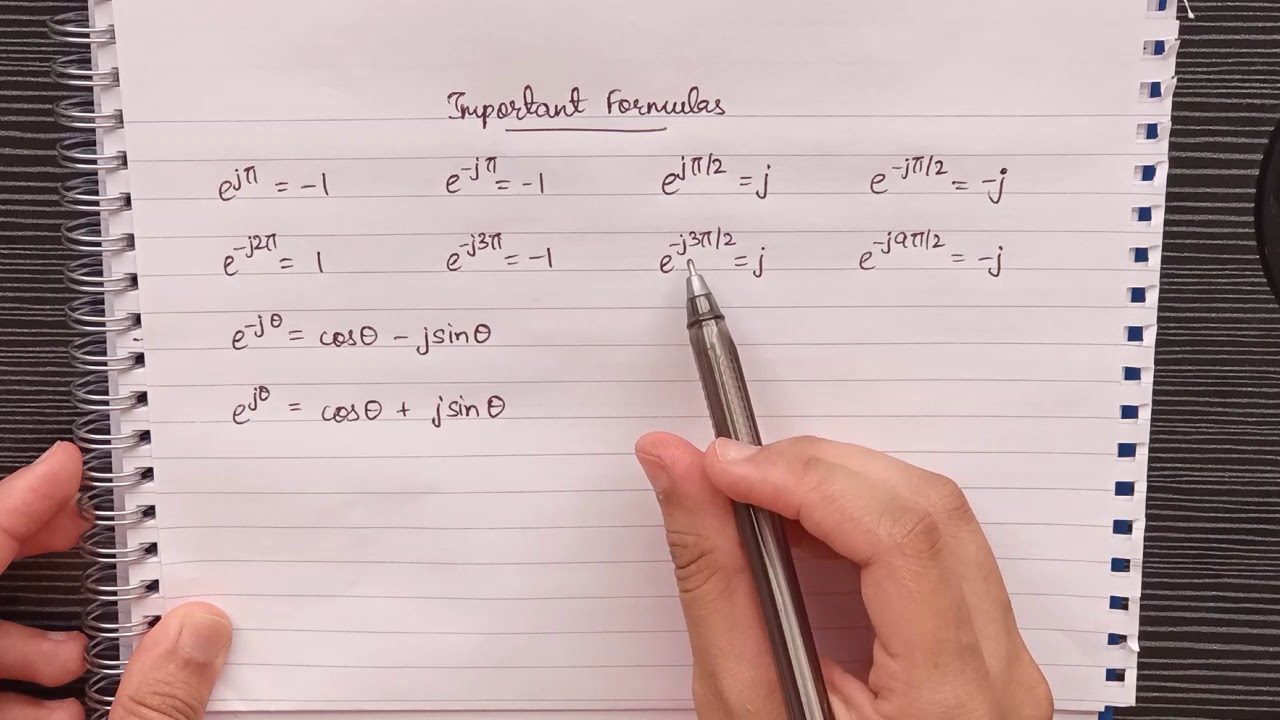 Important Formulas
e^{jπ} = -1 e^{-jπ} = -1 e^{jπ/2} = j e^{-jπ/2} = -j
e^{-j2π} = 1 e^{-j3π} = -1 e^{-j3π/2} = j e^{-j9π/2} = -j
e^{-jθ} = cosθ - jsinθ
e^{jθ} = cosθ + jsinθ